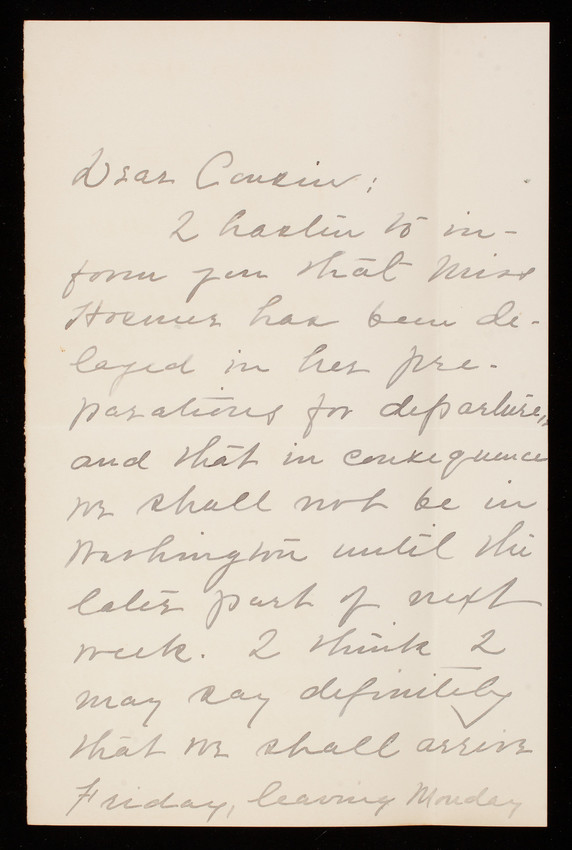 Dear Cousin:
I hasten to in-
form you that Miss
Hosmer has been de-
layed in her pre-
parations for departure,
and that in consequence
we shall not be in
Washington until the
later part of next
week. I think I
may say definitely
that we shall arrive
Friday, leaving Monday